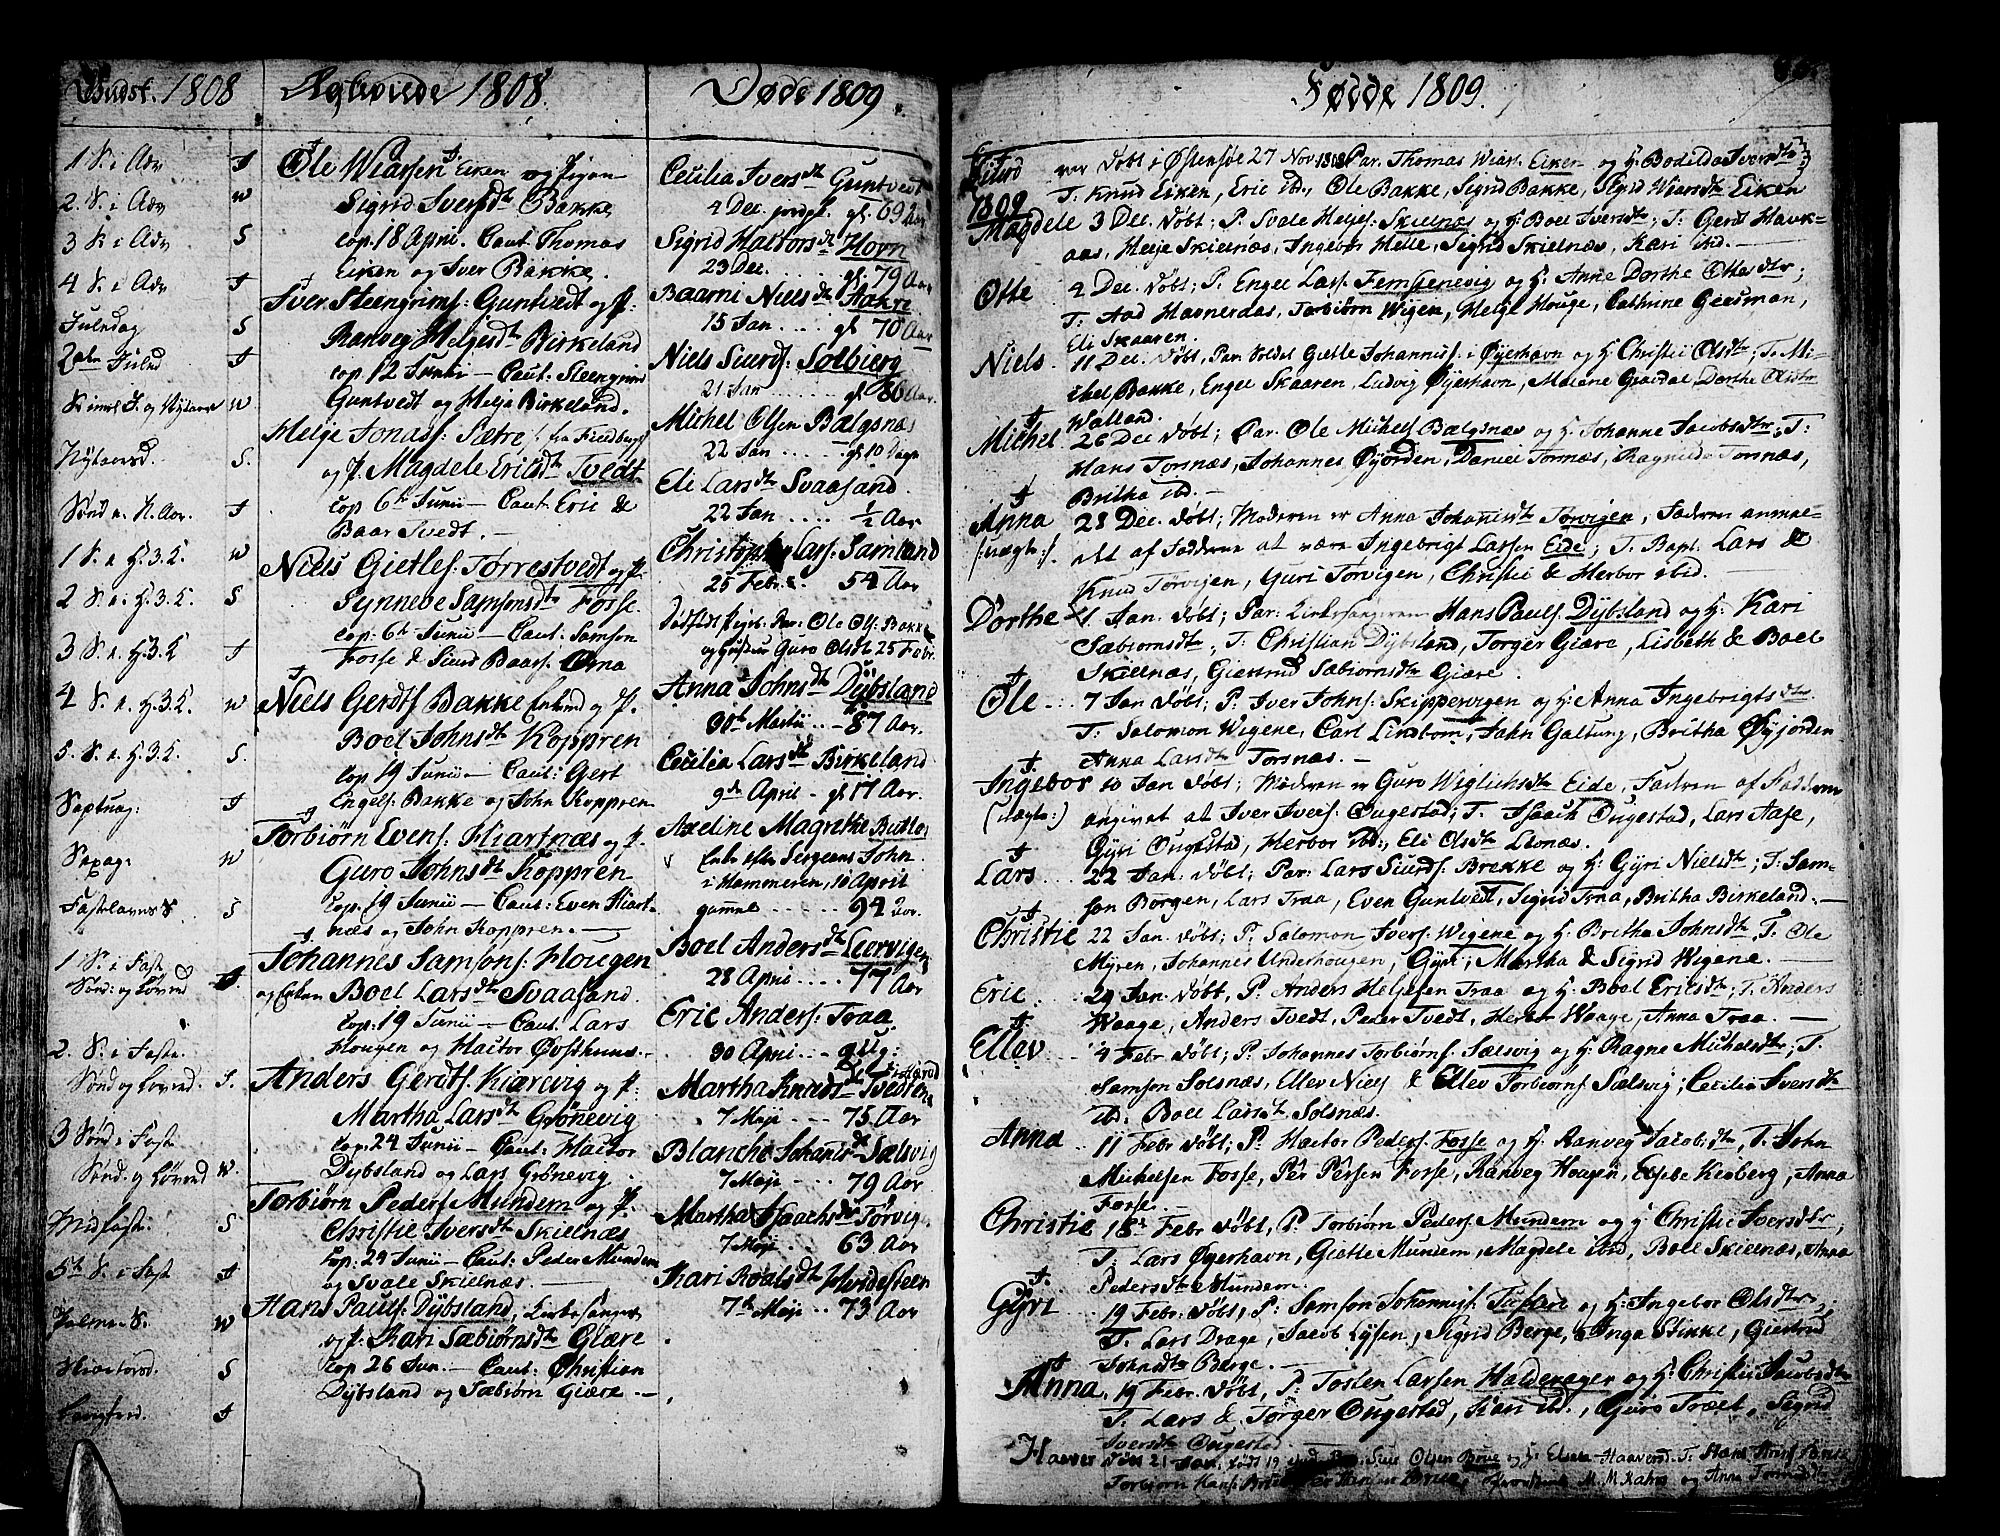 Gudst. 1808
1 S. i Adv J
2. S. i Adv W
3 S. i Adv S
4 S. i Adv J
Juledag S
2den Juled J
S. imel. J. og Nytaar W
Nytaarsd. S.
Sønd e. N. Aar. J
1 S. e. H. 3. K. W
2 S. e. H. 3. K. S
3 S. e. H. 3. K J
4 S. e. H. 3. K. W
5. S. e. H. 3. K S.
Septuag: J
Sexag: W
Fastelavns S S
1 S. i Fast
Sønd: og Løverd J.
2. S. i Faste.
Sønd og Løverd. S.
3 Sønd i Fast
Sønd. og Løverd W.
Midfaste: S
5te S. i Fast J
Palme S. W
Skiertorsd. S
Langfred. J
Ægteviede 1808
Ole Wiarsen Eiken og Pigen
Sigrid Iversdtr Bakke
cop. 18 April. Caut. Thomas
Eiken og Iver Bakke.
Iver Steengrims: Guntvedt og P:
Ranveg Helgesdtr Birkeland
cop. 12 Junii — Caut: Steengrim
Guntvedt og Helje Birkeland.
Helje Jonass: Sætre /: fra Findberg
og P. Magdele Ericsdtr Tvedt
Cop. 6te Junii — Caut Eric &
Baar Tvedt. —
Niels Gietles: Torrestvedt og P.
Synneve Samsonsdtr Fosse
cop: 6te Junii — Caut: Samson
Fosse & Siurd Baars. Orna
Niels Gerdts Bakke Enkmd og P.
Boel Johnsdtr Koppren
Cop 19 Junii — Caut: Gert
Engels: Bakke og John Koppren
Torbiørn Evens: Hiartnæs og P.
Guro Johnsdtr Koppren
cop: 19 Junii — Caut: Even Hiart-
næs og John Koppren. —
Johannes Samsons: Hougen
og Enken Boel Larsdtr Svaasand.
Cop: 19 Junii — Caut. Lars
Hougen og Hactor Øvsthuus.
Anders Gerdts. Kiærevig og P:
Martha Larsdtr Grønevig
cop. 24 Junii — Caut: Hactor
Dybsland og Lars Grønevig.
Torbiørn Peders. Mundem og P.
Christie Iversdtr Skielnæs
Cop: 29 Junii — Caut: Peder Mundem
og Svale Skielnæs. —
Hans Pauls: Dybsland, Kirkesanger
og P: Kari Sæbiørnsdtr Giære
Cop 26 Jun. — Caut: Christian
Dybsland og Sæbiørn Giære. —
Døde 1809.
Cecilia Iversdtr Guntvedt
4 Dec. jordf. gl. 69 Aar
Sigrid Hactorsdtr Hovn
23 Dec. ...... gl. 79 Aar
Baarni Nielsdtr Aakre
15 Jan .... gl 70 Aar
Niels Siurds: Solbierg
21 Jan ...... gl 86 Aar.
Michel Olsen Bælgsnæs
22 Jan ..... gl 10 Dage
Eli Larsdtr Svaasand.
22 Jan .... ½ Aar
Christopher Lars: Samland
25 Febr. 54 Aar
Dødfødt Pigeb. Par: Ole Ols: Bakke
og Hustrue Guro Olsdtr 25 Febr.
Anna Johnsdtr Dybsland
30te Martii ... 87 Aar.
Cecilia Larsdtr Birkeland
9de April - gl 17 Aar.
Axeline Magrethe Butler
Enke efter Sergeant John
i Hammeren, 10 April
gammel ..... 94 Aar.
Boel Andersdtr Leervigen
28 April ..... 77 Aar
Eric Anders: Traa
30 April ... 9 Ug:
Martha Knudsdtr Tvedten
7 Maji ... 75 Aar
Blanche Johannisdtr Sælsvig
7 Maji ... 79 Aar
Martha Isaachsdtr Tørvig
7 Maji .. 63 Aar
Kari Roalsdtr Hvidesteen
7de Maji .. 73 Aar
Fødte 1809.
Eilerd var Døbt i Østensøe 27 Nov 1808 Par. Thomas Wiars. Eiken og H: Bodilda Iversdtr
T: Knud Eiken, Eric ibd, Ole Bakke, Sigrid Bakke, Sigrid Wiarsdtr Eiken
1809
Magdele 3 Dec. Døbt; P. Svale Heljes: Skielnæs og H: Boel Iversdtr; T: Gerdt Hauk-
aas, Helje Skielnæs, Ingebor Helle, Sigrid Skielnæs, Kari ibd. —
Otte 4 Dec. Døbt; P. Engel Lars: Femsenevig og H: Anne Dorthe Ottesdtr;
T: Aad Havnerdas, Torbiørn Wigen, Helje Houge, Cathrine Geesman,
Eli Skaaren.
Niels 11 Dec. Døbt, Par. Soldat Gietle Johanniss: i Øyerhavn og H: Christi Olsdtr; T: Mi-
chel Bakke, Engel Skaaren, Ludvig Øyerhavn, Marene Gravdal, Dorthe Olsdtr
Walland.
Michel 26 Dec Døbt; Par. Ole Michels: Bælgsnæs og H: Johanne Jacobsdtr; T:
Hans Torsnæs, Johannes Øyjorden, Daniel Torsnæs, Ragnilde Torsnæs,
Britha ibd. —
Anna 28 Dec. Døbt; Moderen er Anna Johannisdtr Tørvigen, Faderen anmæ-
/:uægte:/. det af Fadderne at være Ingebrigt Larsen Eide; T. Bapt. Lars &
Knud Tørvigen, Guri Tørvigen, Christi & Herbor ibid. —
Dorthe 1. Jan. Døbt; Par: Kirkesangeren Hans Pauls: Dybsland og H: Kari
Sæbiornsdtr, T: Christian Dybsland, Torger Giære, Lisbeth & Boel
Skielnæs, Giertrud Sæbiornsdtr Giære.
Ole 7 Jan Døbt; P: Iver Johns: Skippervigen og H: Anna Ingebrigtsdtr
T: Salomon Wigene, Carl Lindbom, Jahn Galtung, Britha Øyjorden
Anna Larsdtr Torsnæs. —
Ingebor 10 Jan Døbt; Moderen er Guro Wiglichsdtr Eide, Faderen af Fadderne
(uægte:) angivet at Iver Ivers: Ougestad; T. Isaach Ougestad, Lars Aase,
Gyri Ougestad, Herbor ibd:, Eli Olsdtr Lionæs.
Lars 22 Jan. Døbt; Par: Lars Siurds: Brekke og H: Gyri Nielsdtr; T: Sam-
son Borgen, Lars Traa, Even Guntvedt, Sigrid Traa, Britha Birkeland. —
Christie 22 Jan. Døbt; P: Salomon Ivers: Wigene og H: Britha Johnsdtr, T. Ole
Myren, Johannes Underhougen, Gyri, Martha & Sigrid Wigene. —
Eric 29 Jan. Døbt, P: Anders Heljesen Traa og H: Boel Ericsdtr; T: Anders
Waage, Anders Tvedt, Peder Tvedt, Herbor Waage, Anna Traa. —
Ellev 4 Febr Døbt; P: Johannes Torbiørns: Sælsvig og H: Ragne Michelsdtr, T.
Samson Solsnæs, Ellev Niels & Ellev Torbiørns Sælsvig; Cecilia Iversdtr
ibd: Boel Larsdtr Solsnæs.
Anna 11 Febr Døbt; P: Hactor Peders: Fosse og H: Ranveg Jacobsdtr, T: John
Michelsen Fosse, Per Persen Fosse, Ranveg Haagen, Elsebe Kedberg, Anna
Fosse. —
Christie 18. Febr Døbt, P. Torbiørn Peders: Mundem og H: Christi Iversdtr,
T: Lars Øyerhavn, Gietle Mundem, Magdele ibid, Boel Skielnæs, Anna
Pedersdtr Mundem.
Gyri 19 Febr: Døbt, P: Samson Johannis: Tufteri og H: Ingebor Olsdtr;
T. Lars Drage, Jacob Lysen, Sigrid Berge, Inga Stinke, Giertrud
Johnsdtr Berge. —
Anna 19 Febr. Døbt, P: Tosten Larsen Halderager og H: Christi Jacobsdtr
T: Lars & Torger Ougestad, Kari ibd., Guro Træet, Sigrid
Iversdtr Ougestad.
Haaver Døbt 21 Jan, født 19 Siur Olsen Brue og H: Elsebe Haaversd. T: Hans
Torbiørn Hans: M. M. Hahn og Anna Tormodsdtr